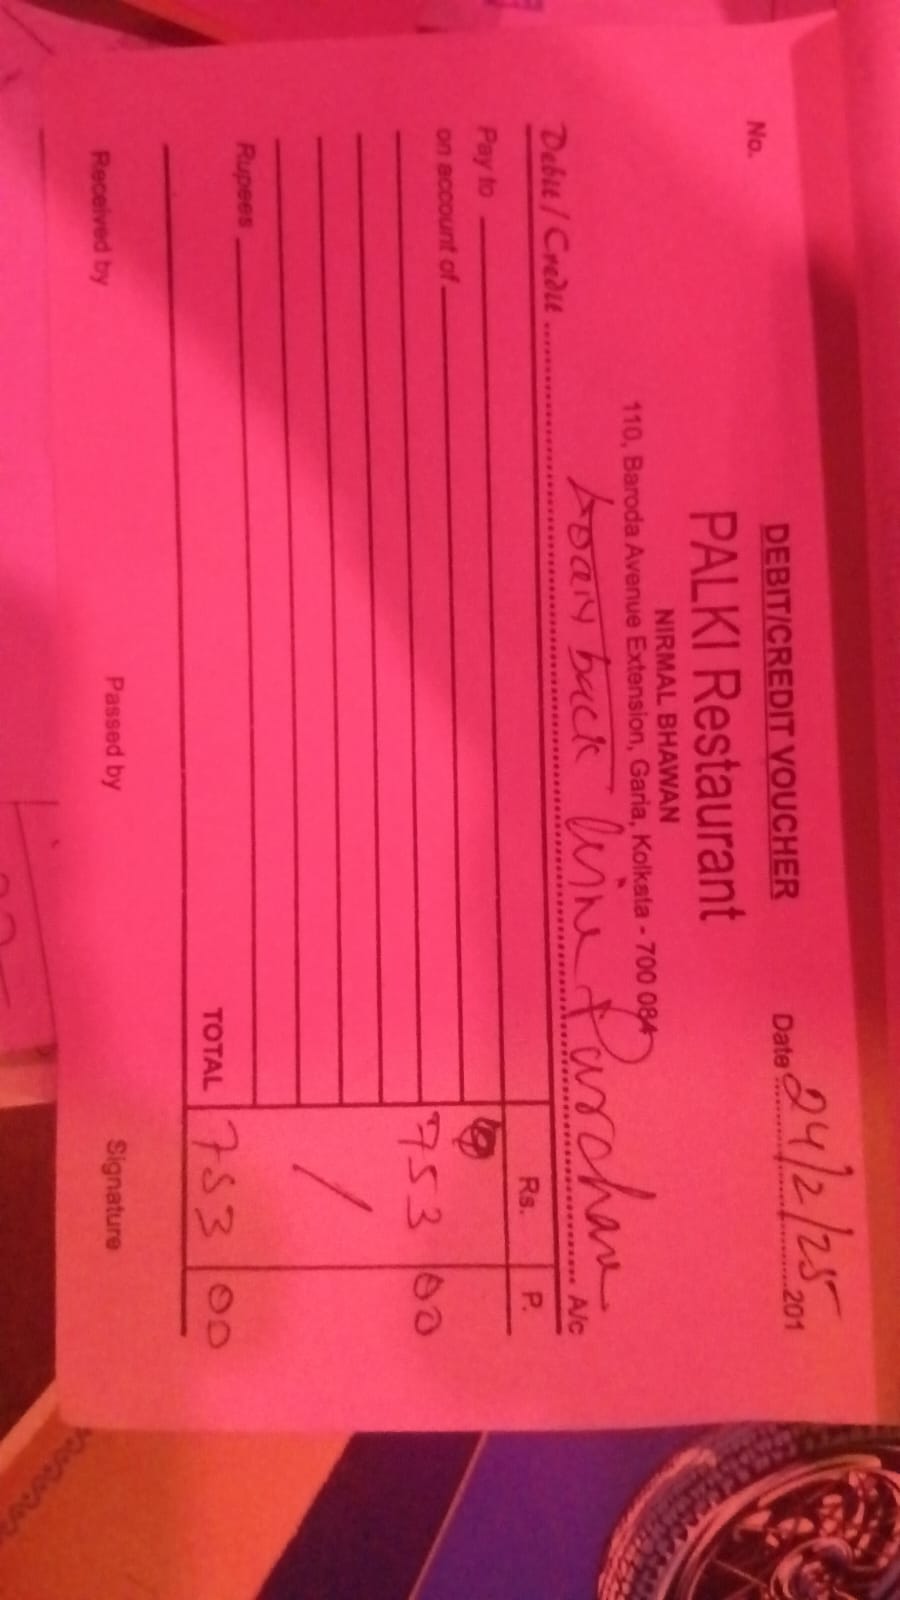 DEBIT/CREDIT VOUCHER
No. Date 24/2/25 201
PALKI Restaurant
NIRMAL BHAWAN
110, Baroda Avenue Extension, Garia, Kolkata - 700 084
Debit/Credit back Purchase A/c
Rs. P.
Pay to
on account of
753 00
/
Rupees
TOTAL 753 00
Received by Passed by Signature